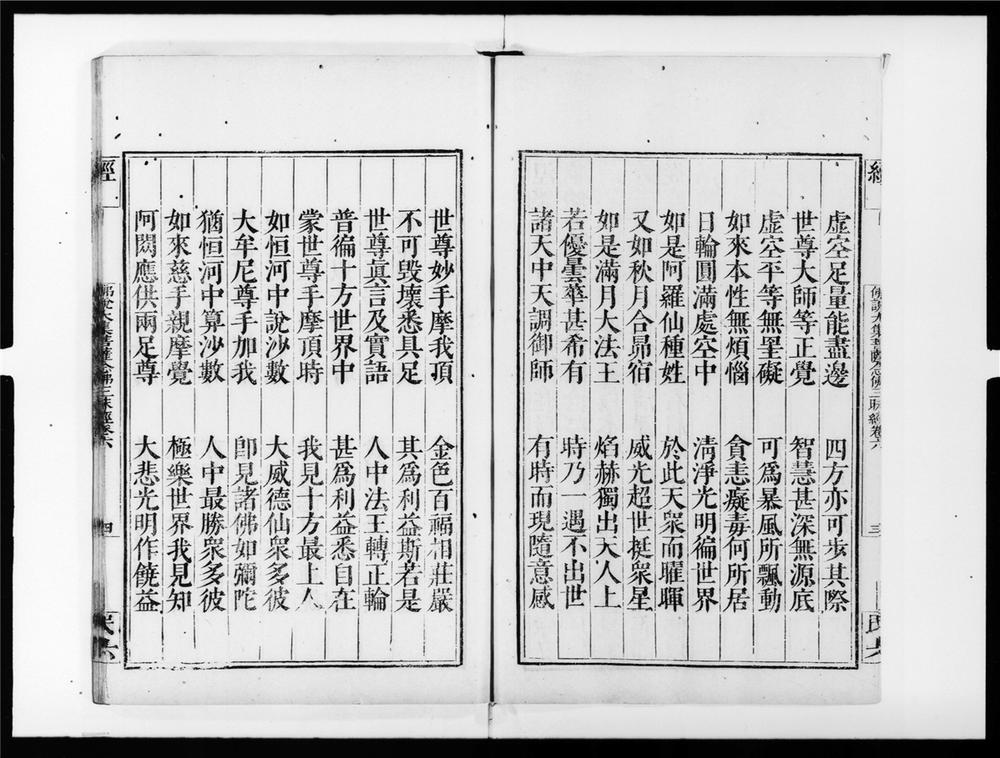 虛空足量能盡邊 四方亦可步其際
世尊大師等正覺 智慧甚深無源底
虛空平等無罣礙 可爲暴風所飄動
如來本性無煩惱 貪恚癡毒何所居
日輪圓滿處空中 淸淨光明徧世界
如是阿羅仙種姓 於此天衆而曜暉
又如秋月合昴宿 威光超世挺衆星
如是滿月大法王 焰赫獨出天人上
若優曇華甚希有 時乃一遇不出世
諸天中天調御師 有時而現隨意感
三
世尊妙手摩我頂 金色百福相莊嚴
不可毀壞悉具足 其爲利益斯若是
世尊眞言及實語 人中法王轉正輪
普徧十方世界中 甚爲利益悉自在
蒙世尊手摩頂時 我見十方最上人
如恒河中說沙數 大威德仙衆多彼
大牟尼尊手加我 卽見諸佛如彌陀
猶恒河中算沙數 人中最勝衆多彼
如來慈手親摩覺 極樂世界我見知
阿閦應供兩足尊 大悲光明作饒益
經
四
民六